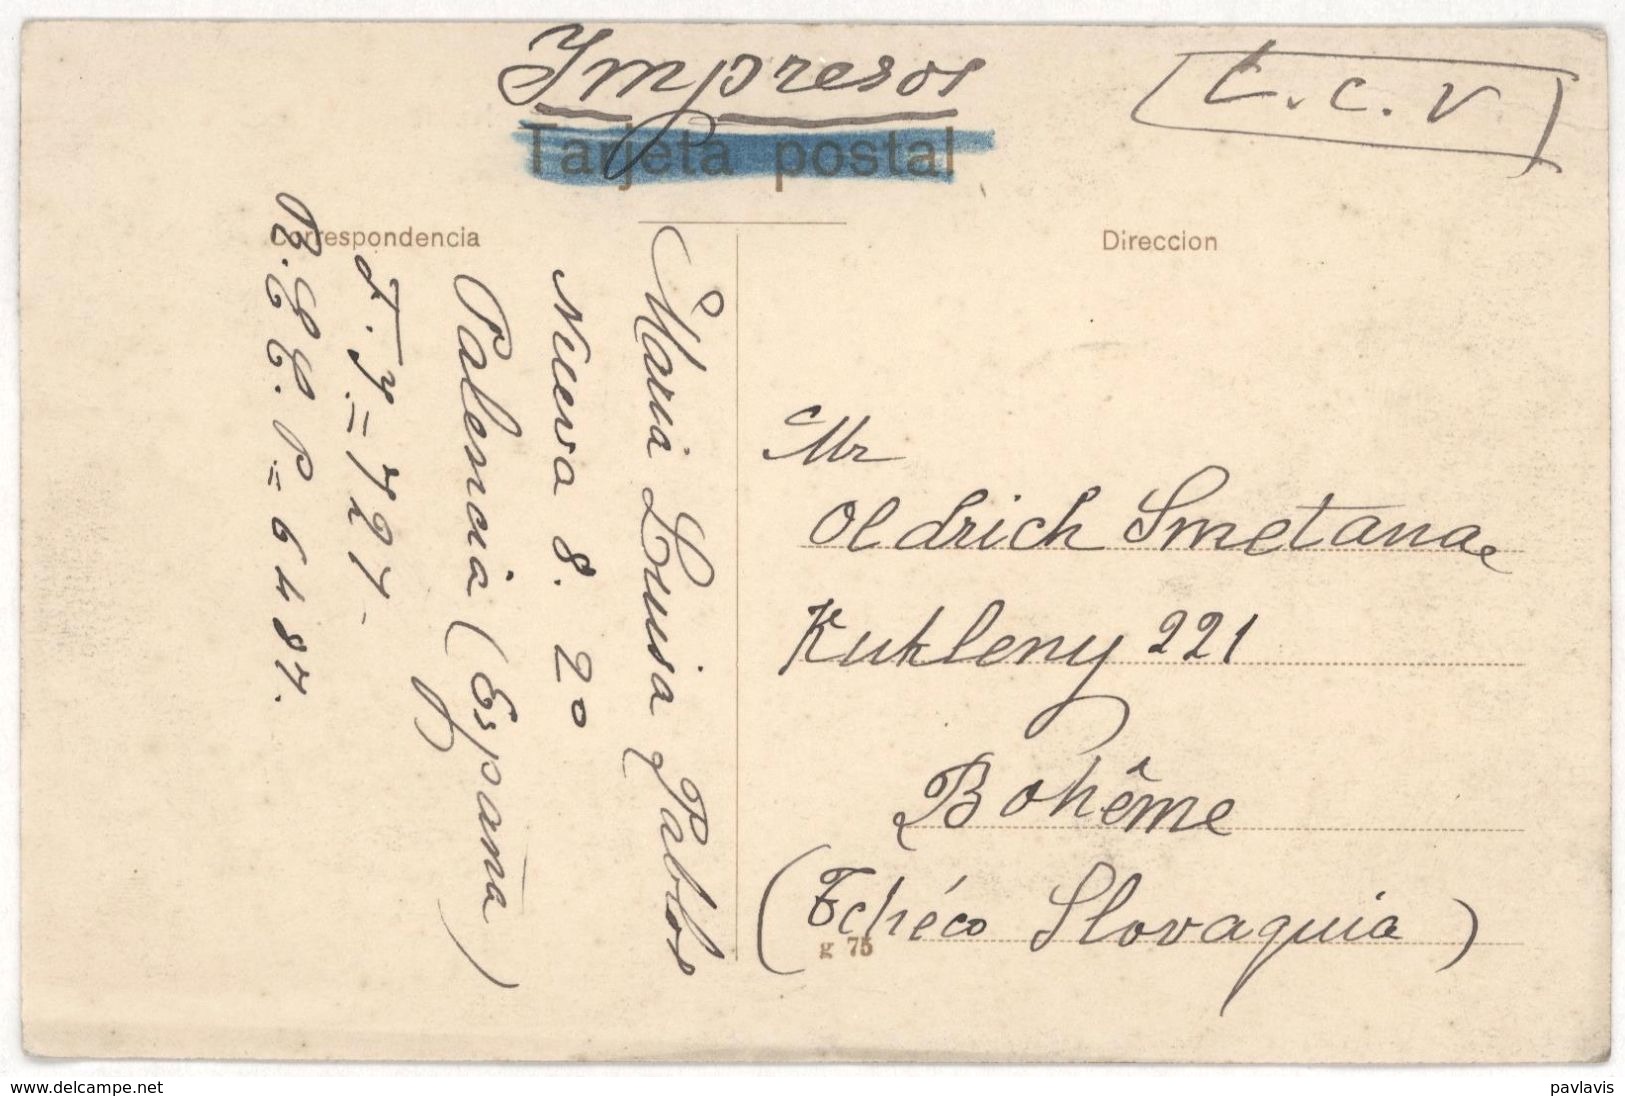 Impresos
T.C.V
Tarjeta postal
Correspondencia
Direccion
Maria Luisa Pablos
Nueva 8. 20
Palencia (España)
B.EE.P = 6487.
Mr
Oldrich Smetana
Kukleny 221
Bohême
(Tchéco Slovaquia)
g 75
www.delcampe.net
pavlavis